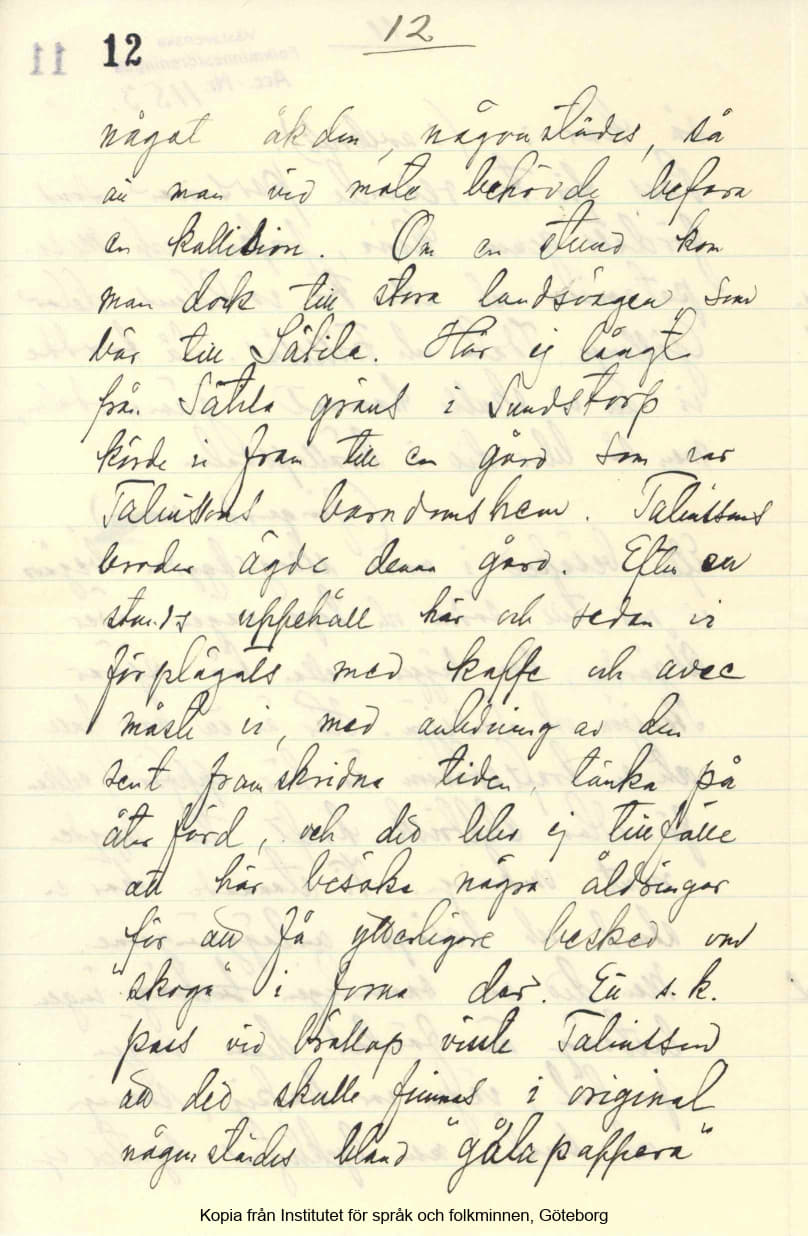 12
12
något åkdon, någonstädes, så
att man vid möte behövde befara
en kollision. Om en stund kom
man dock till stora landsvägen, som
bär till Sätila. Här ej långt
från Sätila gräns i Sundstorp
körde vi fram till en gård som var
Talinssons barndomshem. Talinssons
broder ägde denna gård. Efter en
stunds uppehåll här och sedan vi
förplägats med kaffe och avec
måste vi, med anledning av den
sent framskridna tiden, tänka på
återfärd, och det blev ej tillfälle
att här besöka några åldringar
för att få ytterligare besked om
"skoga" i forna dar. Ett s.k.
pass vid bröllop visste Talinsson
att det skulle finnas i original
någonstädes bland "gålapappera"
Kopia från Institutet för språk och folkminnen, Göteborg